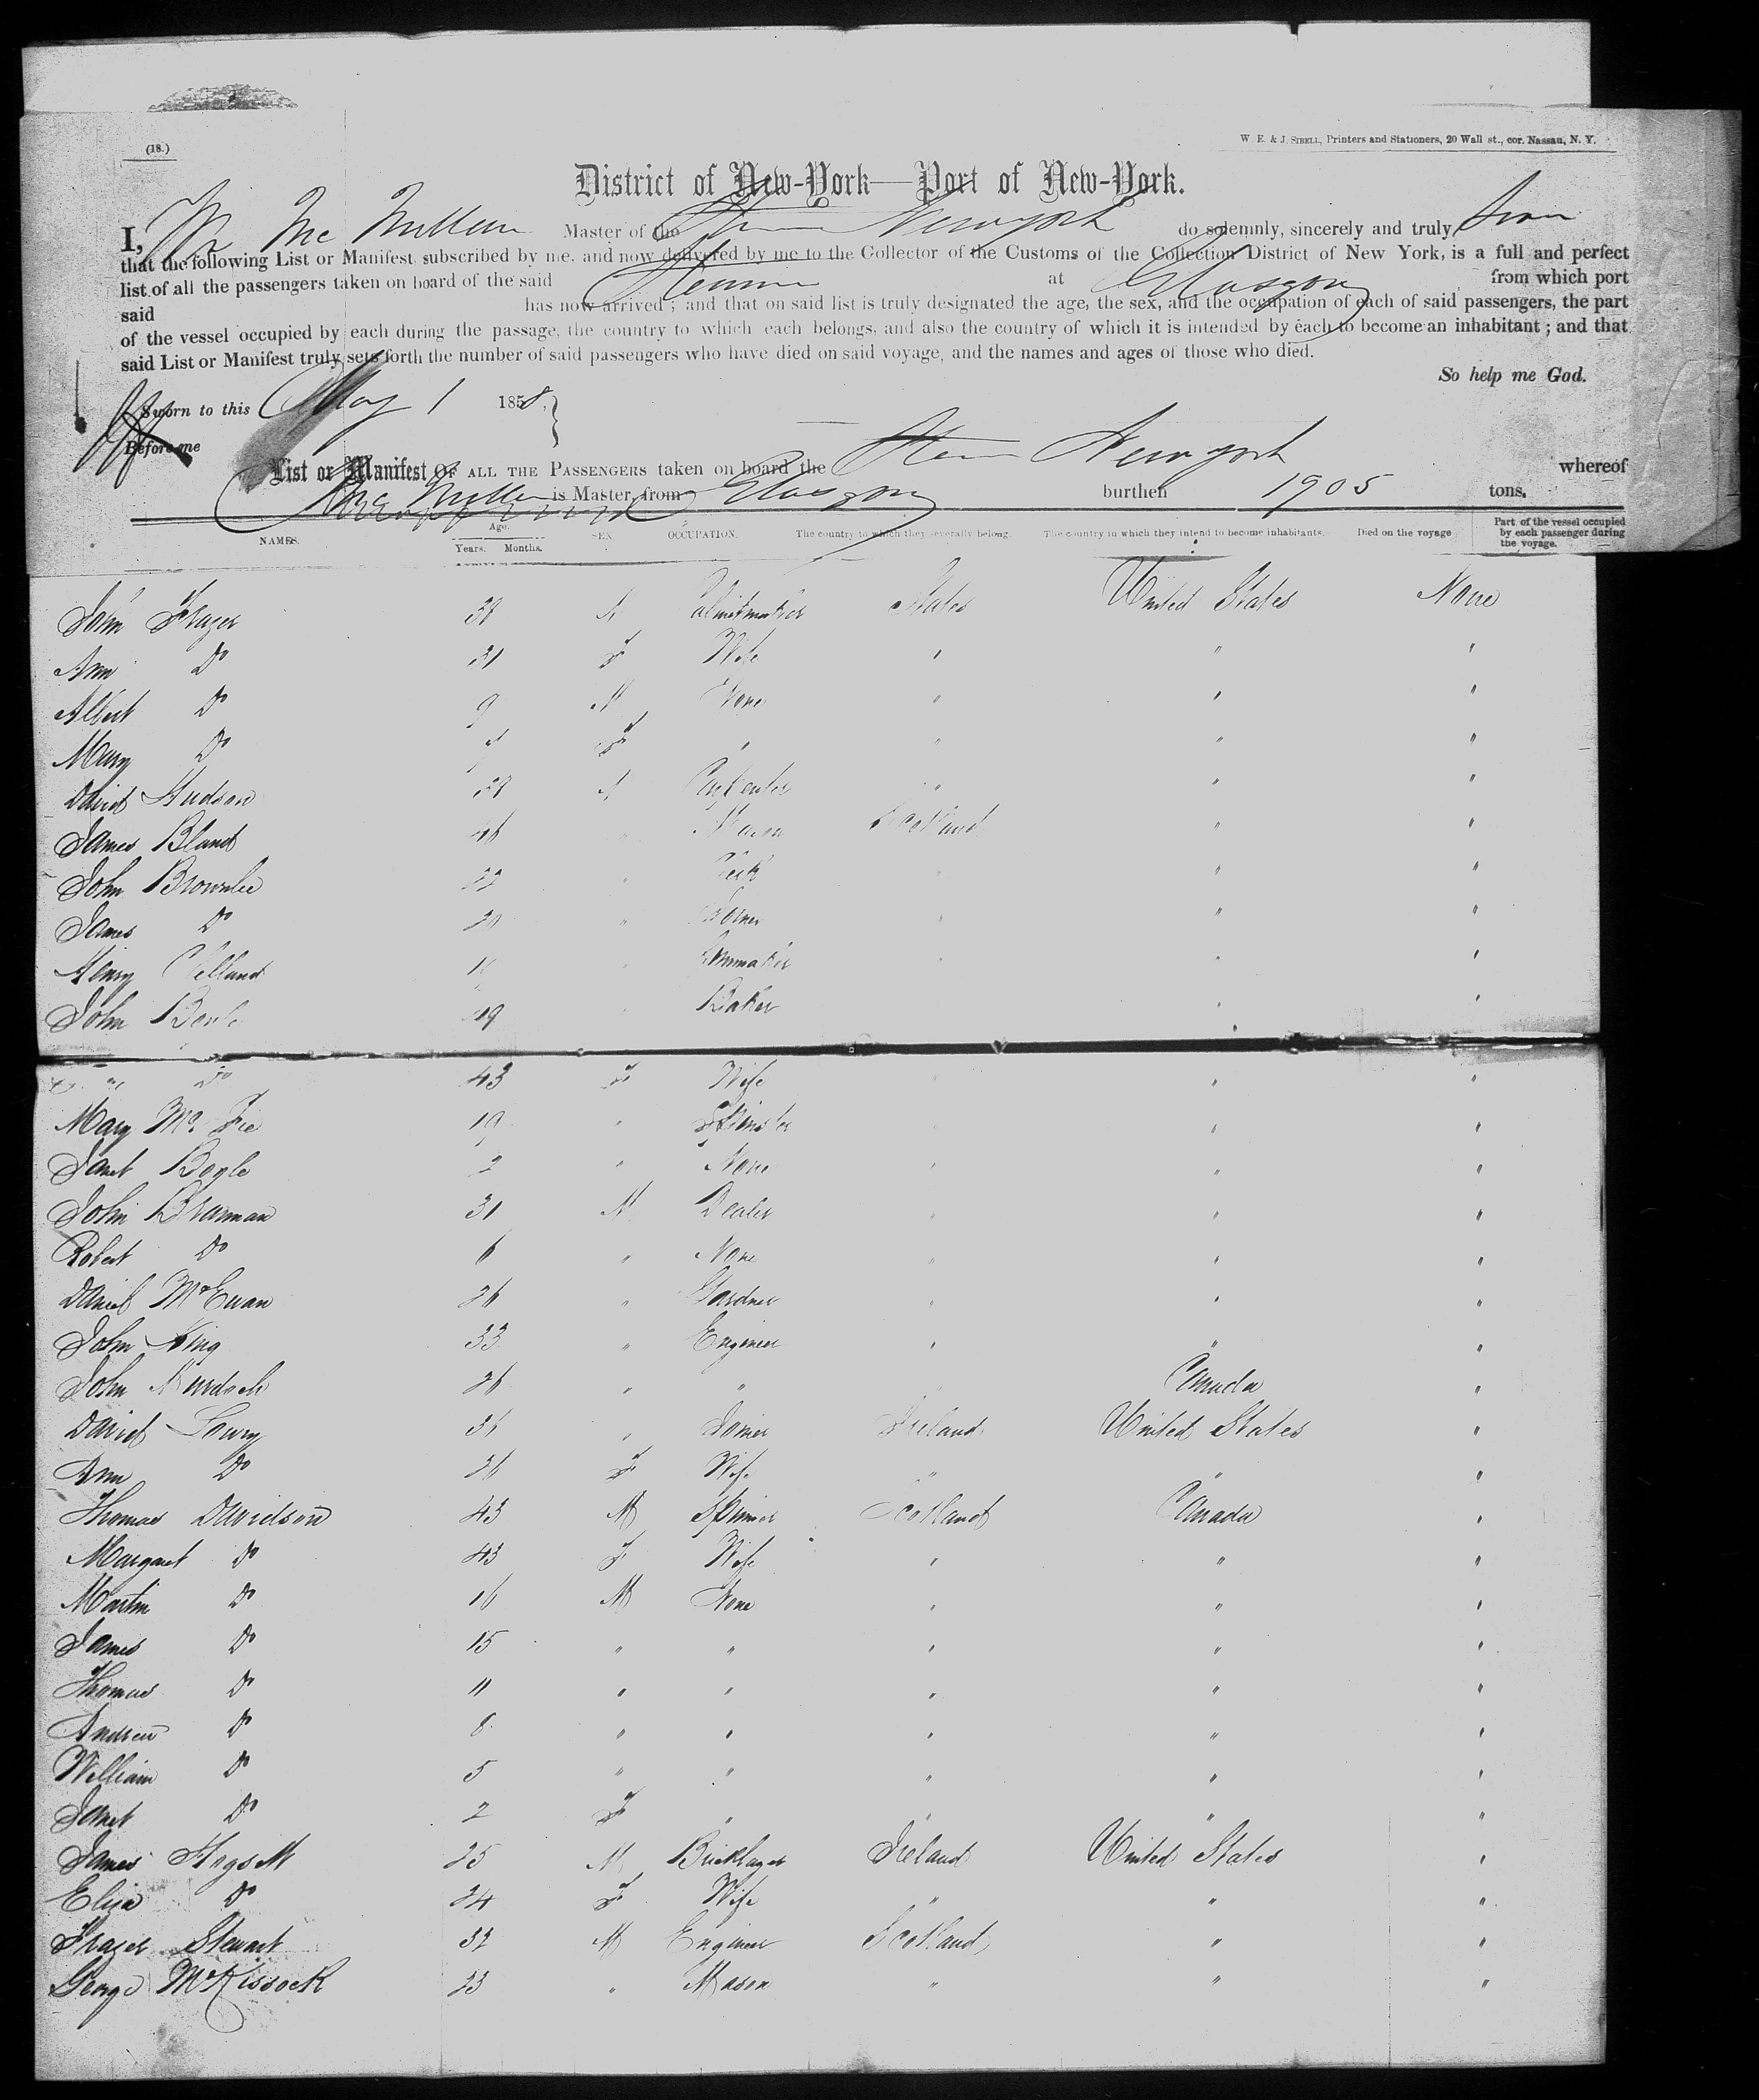 (18.)
W. E. & J. SIBELL, Printers and Stationers, 20 Wall st., cor. Nassau, N. Y.
District of New-York—Port of New-York.
I, Mc Millan Master of the Newyork do solemnly, sincerely and truly
that the following List or Manifest, subscribed by me, and now delivered by me to the Collector of the Customs of the Collection District of New York, is a full and perfect
list of all the passengers taken on board of the said at Glasgow from which port
said has now arrived ; and that on said list is truly designated the age, the sex, and the occupation of each of said passengers, the part
of the vessel occupied by each during the passage, the country to which each belongs, and also the country of which it is intended by each to become an inhabitant ; and that
said List or Manifest truly sets forth the number of said passengers who have died on said voyage, and the names and ages of those who died.
So help me God.
Sworn to this May 1 1858.
Before me
List or Manifest OF ALL THE PASSENGERS taken on board the Newyork whereof
is Master, from Glasgow burthen 1905 tons.
NAMES. Age. Years. Months. SEX OCCUPATION. The country to which they severally belong. The country in which they intend to become inhabitants. Died on the voyage Part of the vessel occupied by each passenger during the voyage.
John Frazer M States United States None
Ann Do 31 F Wife " " "
Albert Do 9 M None " " "
Mary Do F " " " "
David Hudson M Carpenter " " "
James Bland M Mason Scotland " "
John Brownlee 22 " " " "
James Do " Joiner " " "
Henry Clelland " " " "
John Baker " "
Do 43 F Wife " "
Mary McFie 19 " Spinster " "
Janet Bogle 2 " None " " "
John 31 M Dealer " " "
Robert Do 6 " None " " "
Daniel McEwan 26 " Gardner " " "
John King 33 " Engineer " " "
John Murdoch 26 " " " Canada "
David Lowry 36 " Joiner Ireland United States "
Ann Do 26 F Wife " " "
Thomas Davidson 43 M Spinner Scotland Canada "
Margaret Do 43 F Wife " " "
Martin Do 16 M None " " "
James Do 15 " " " " "
Thomas Do 11 " " " " "
Andrew Do 8 " " " " "
William Do 5 " " " " "
Janet Do 2 F " " " "
James 25 M Bricklayer Ireland United States "
Eliza Do 24 F Wife " " "
Frazer Stewart 32 M Engineer Scotland " "
George McKissock 23 " Mason " " "